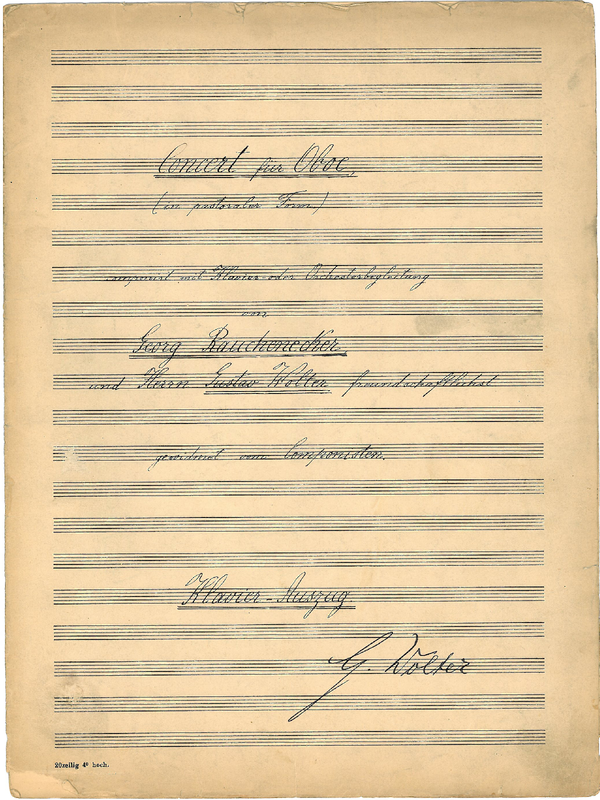 Concert für Oboe,
(in pastoraler Form)
componirt mit Klavier- oder Orchesterbegleitung
von
Georg Rauchenecker,
und Herrn Gustav Wolter freundschaftlichst
gewidmet vom Componisten.
Klavier-Auszug.
G. Wolter
20zeilig 4º hoch.